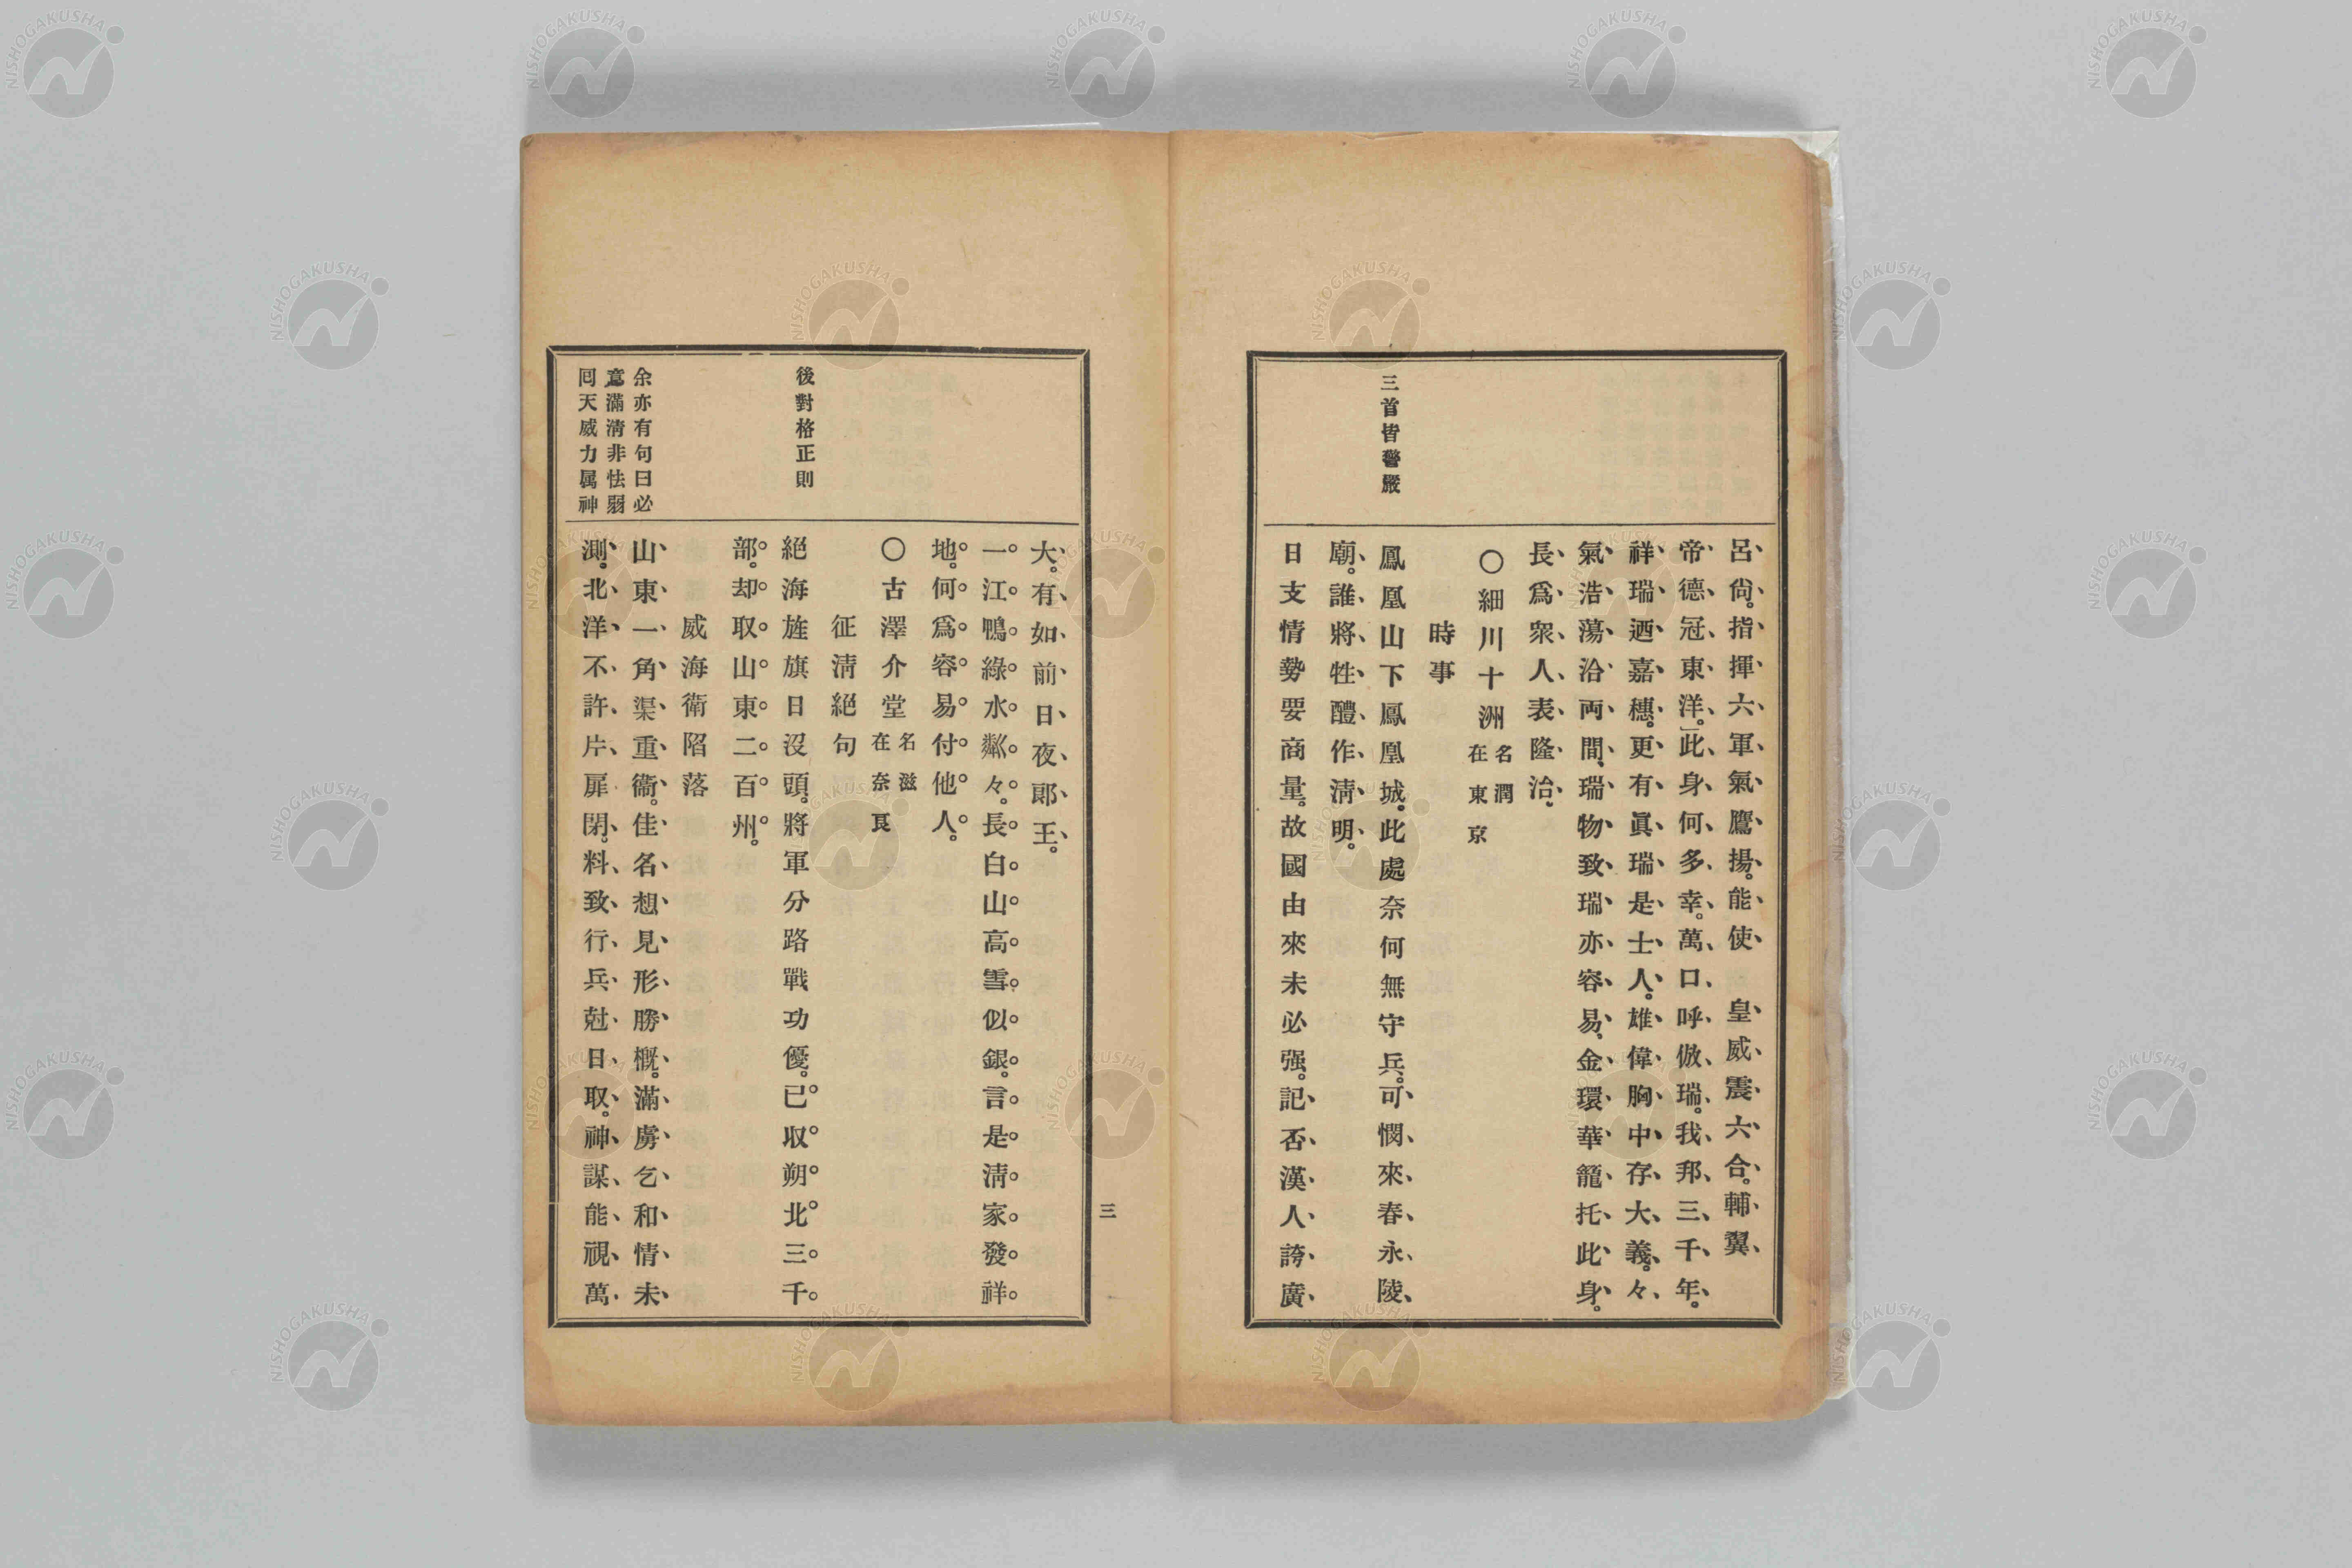 三首皆警嚴
呂尙。指揮六軍氣鷹揚。能使 皇威震六合。輔翼
帝德冠東洋。」此身何多幸。萬口呼倣瑞。我邦三千年。
祥瑞迺嘉穗。更有眞瑞是士人。雄偉胸中存大義。々
氣浩蕩洽両間、瑞物致瑞亦容易、金環華籠托此身。
長爲衆人表隆治。
〇細川十洲 名潤 在東京
時事
鳳凰山下鳳凰城。此處奈何無守兵。可憫來春永陵
廟。誰將牲醴作淸明。
日支情勢要商量。故國由來未必强。記否漢人誇廣
大。有如前日夜郎王。
一江鴨綠水粼々。長白山高雪似銀。言是淸家發祥
地。何爲容易付他人。
〇古澤介堂 名滋 在奈良
征淸絕句
後對格正則
絕海旌旗日沒頭。將軍分路戰功優。已取朔北三千
部。却取山東二百州。
威海衛陷落
余亦有句曰必
意滿淸非怯弱
囘天威力属神
山東一角渠重衞。佳名想見形勝概。滿虜乞和情未
測。北洋不許片扉閉。料致行兵尅日取。神謀能視萬
三
NISHOGAKUSHA